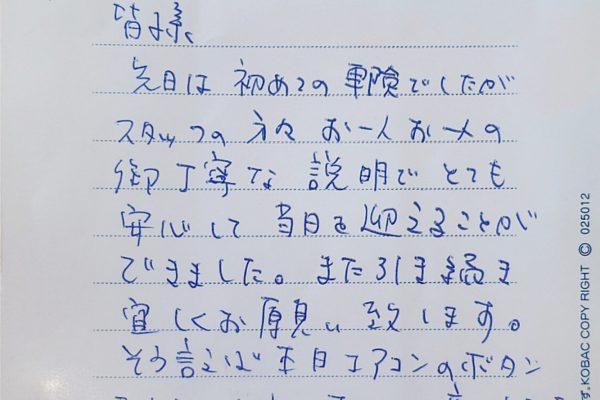 皆様、
先日は 初めての 車険でしたが
スタッフの 方々 お一人お一人の
御丁寧な 説明で とても
安心して 当日を 迎えることが
できました。また引き続き
宜しくお願い致します。
そう言えば 車内エアコンのボタン
す。KOBAC COPY RIGHT © 025012